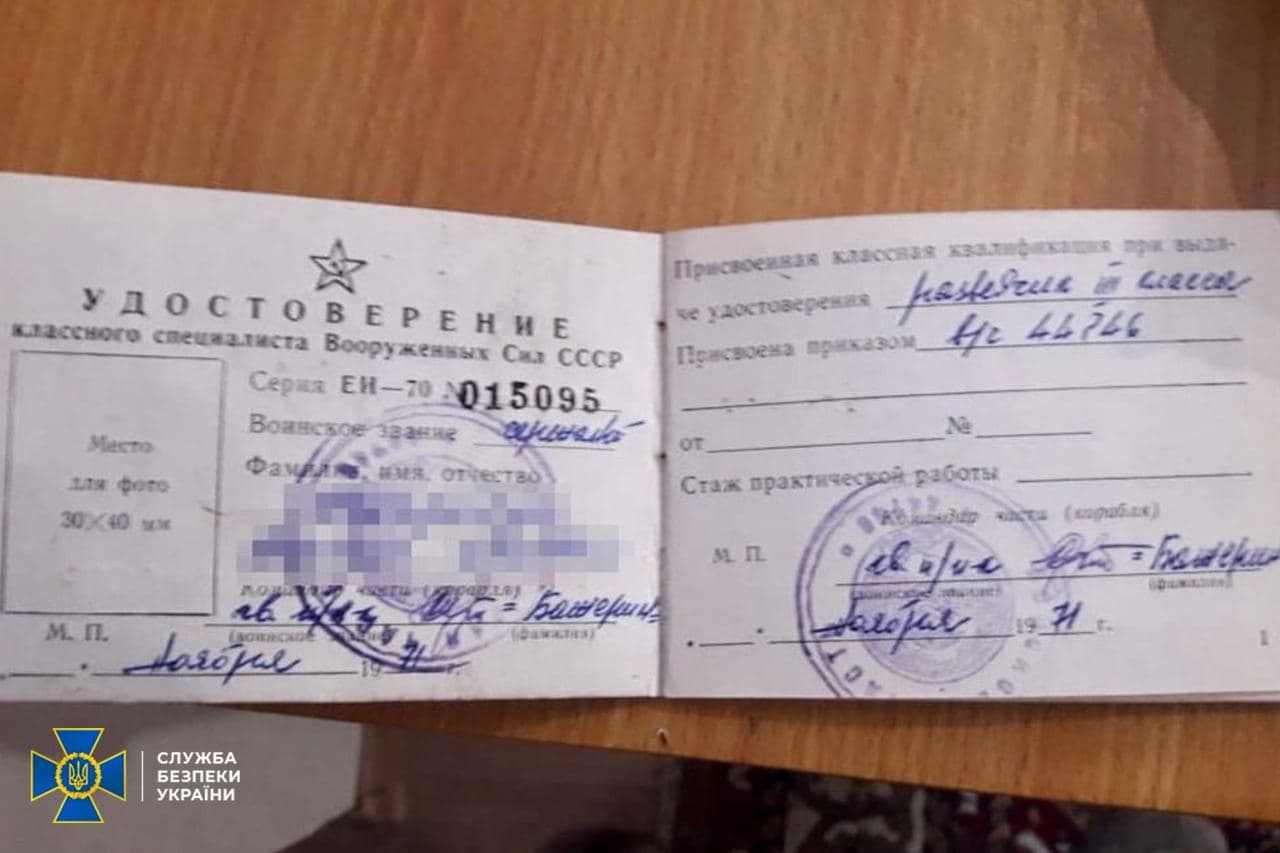 УДОСТОВЕРЕНИЕ
классного специалиста Вооруженных Сил СССР
Место
для фото
30×40 мм
Серия ЕИ—70 № 015095
Воинское звание
Фамилия, имя, отчество
Командир части (корабля)
гв п/п-к = Бажерин
(воинское звание) (фамилия)
М. П.
Ноября 1971 г.
Присвоенная классная квалификация при выда-
че удостоверения разведчик III класса
Присвоена приказом в/ч 44746
от №
Стаж практической работы
Командир части (корабля)
М. П.
(воинское звание) (фамилия)
Ноября 1971 г.
1
СЛУЖБА
БЕЗПЕКИ
УКРАЇНИ